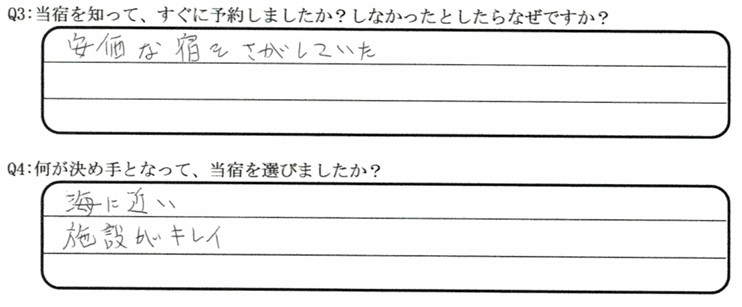 Q3:当宿を知って、すぐに予約しましたか？しなかったとしたらなぜですか？
安価な宿をさがしていた
Q4:何が決め手となって、当宿を選びましたか？
海に近い
施設がキレイ